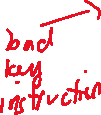 bad
key
instruction